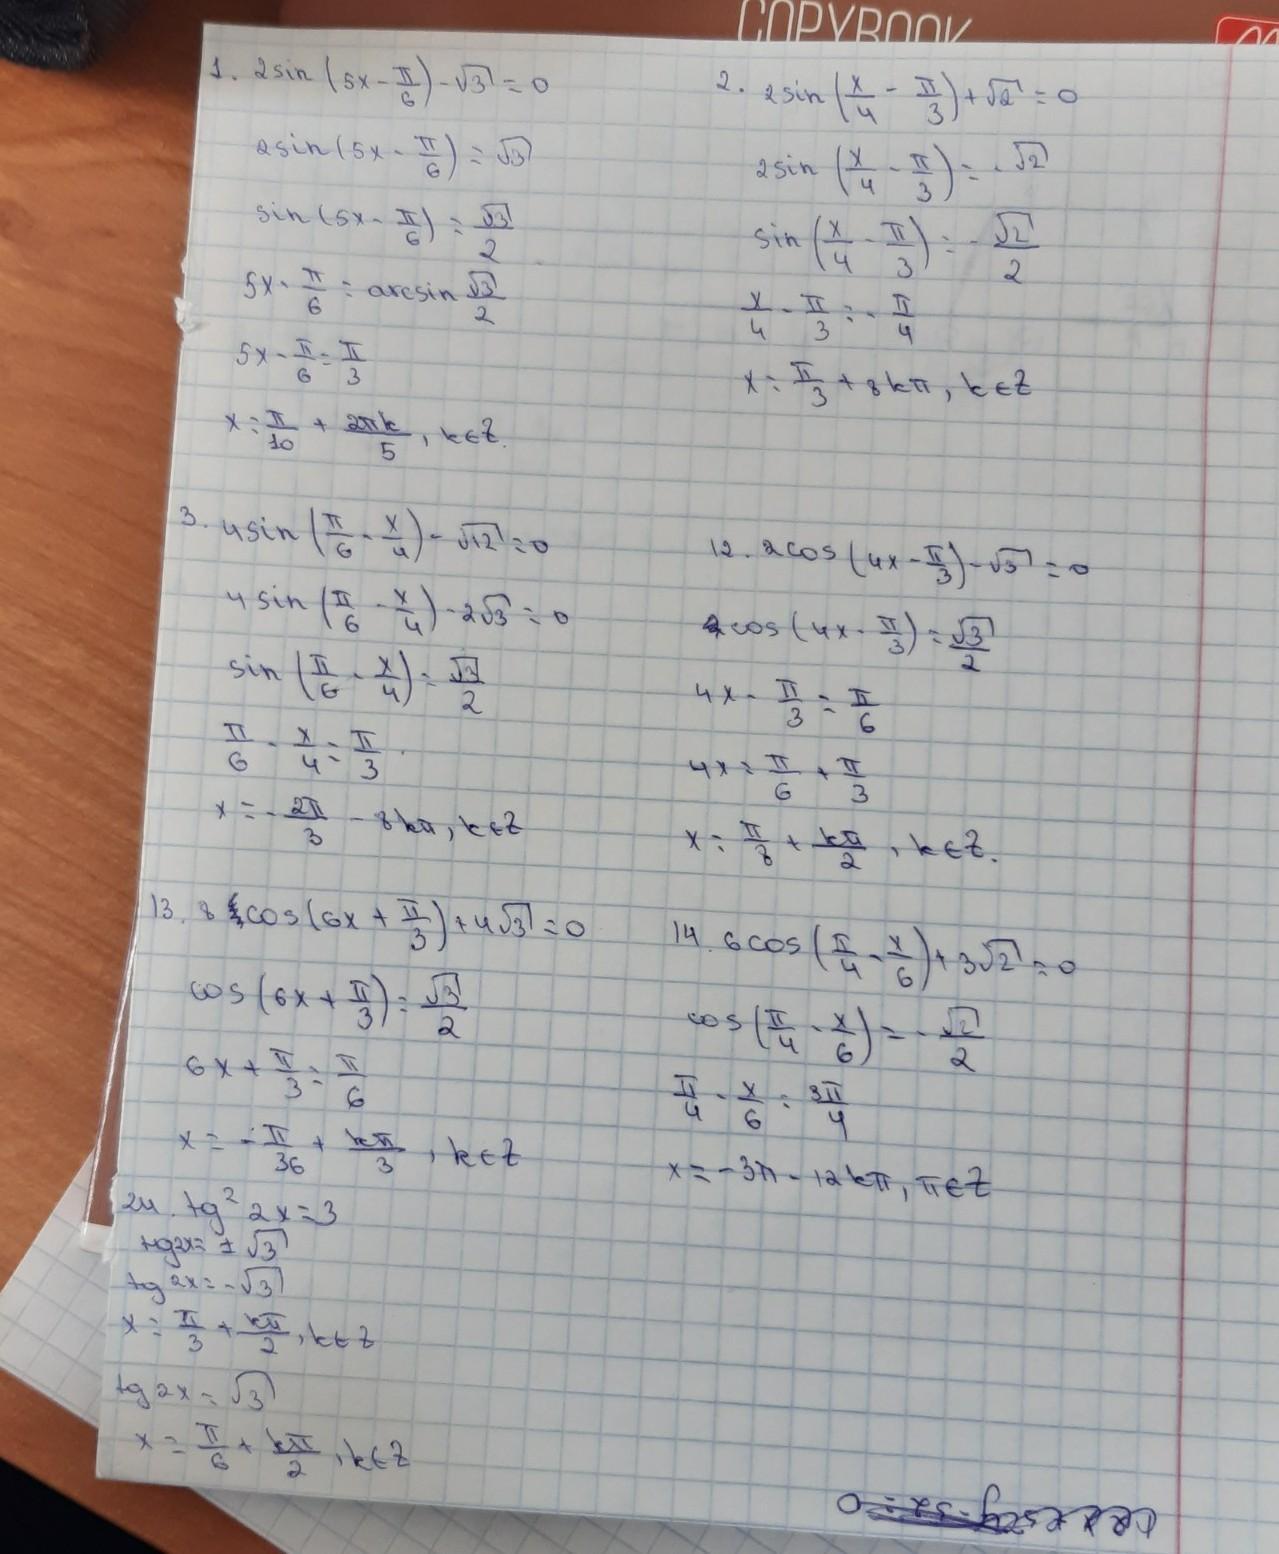 COPYBOOK
1. 2sin(5x-π/6)-√3=0
2sin(5x-π/6)=√3
sin(5x-π/6)=√3/2
5x-π/6=arcsin √3/2
5x-π/6=π/3
x=π/10+2πk/5, k∈Z.
2. 2sin(x/4-π/3)+√2=0
2sin(x/4-π/3)=-√2
sin(x/4-π/3)=-√2/2
x/4-π/3=-π/4
x=π/3+8kπ, k∈Z
3. 4sin(π/6-x/4)-√12=0
4sin(π/6-x/4)-2√3=0
sin(π/6-x/4)=√3/2
π/6-x/4=π/3
x=-2π/3-8kπ, k∈Z
12. 2cos(4x-π/3)-√3=0
cos(4x-π/3)=√3/2
4x-π/3=π/6
4x=π/6+π/3
x=π/8+kπ/2, k∈Z.
13. 8cos(6x+π/3)+4√3=0
cos(6x+π/3)=√3/2
6x+π/3=π/6
x=-π/36+kπ/3, k∈Z
14. 6cos(π/4-x/6)+3√2=0
cos(π/4-x/6)=-√2/2
π/4-x/6=3π/4
x=-3π-12kπ, π∈Z
24. tg² 2x=3
tg2x=±√3
tg2x=-√3
x=π/3+kπ/2, k∈Z
tg2x=√3
x=π/6+kπ/2, k∈Z